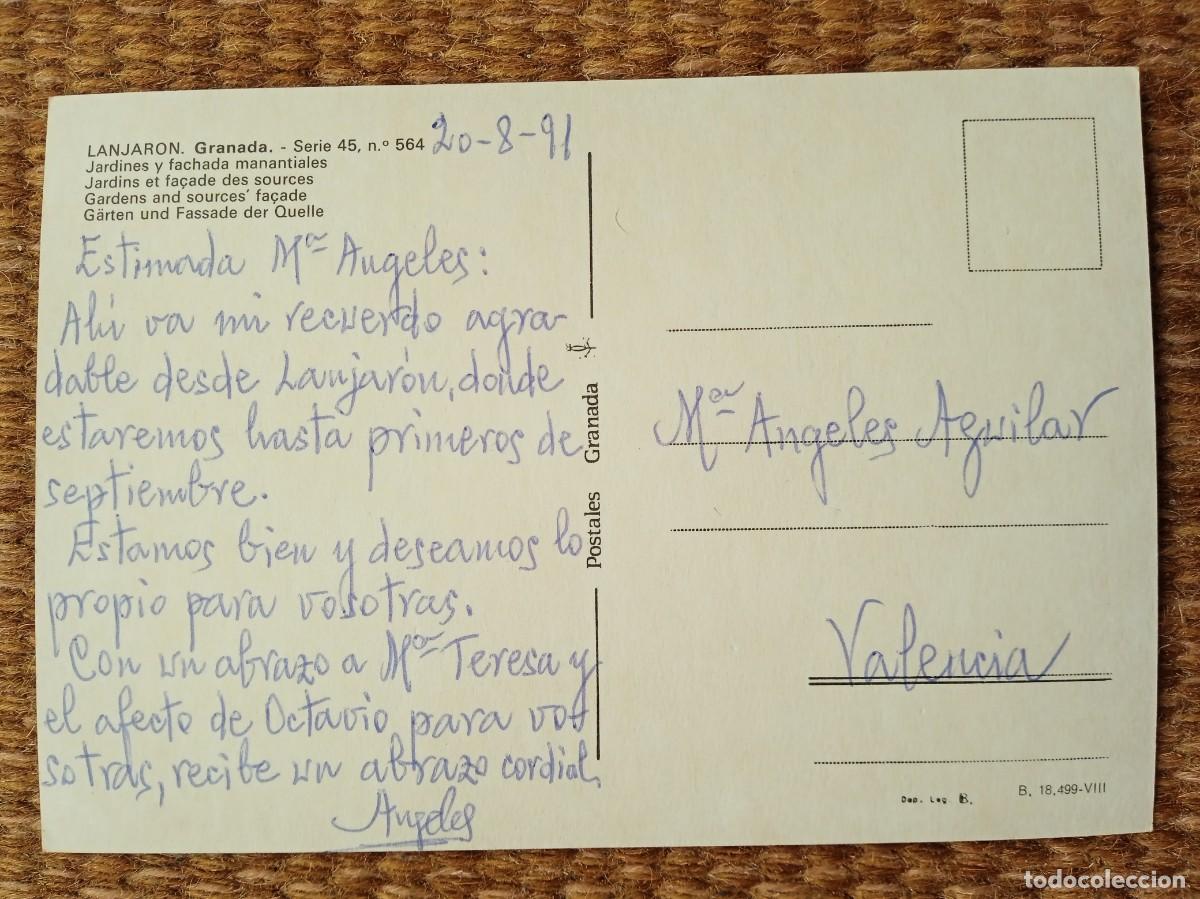 LANJARON. Granada. - Serie 45, n.º 564 20-8-91
Jardines y fachada manantiales
Jardins et façade des sources
Gardens and sources' façade
Gärten und Fassade der Quelle
Estimada Mª Angeles:
Ahí va mi recuerdo agra-
dable desde Lanjarón, donde
estaremos hasta primeros de
septiembre.
Estamos bien y deseamos lo
propio para vosotras.
Con un abrazo a Mª Teresa y
el afecto de Octavio para vo-
sotras, recibe un abrazo cordial,
Angeles
Postales Granada
Mª Angeles Aguilar
Valencia
Dep. Leg. B. B. 18.499-VIII
todocoleccion